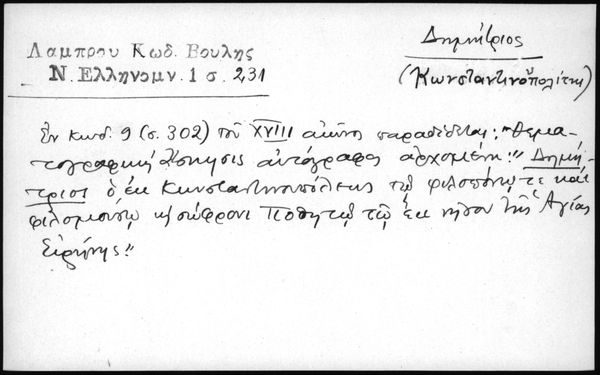 Λαμπρου Κωδ. Βουλης
Ν. Ελληνομν. 1 σ. 231
Δημήτριος
(Κωνσταντινουπολίτης)
Ἐν κώδ. 9 (σ. 302) τοῦ XVIII αἰῶνος παραδίδεται: "Θεμα-
τογραφικὴ αὐτόγραφος ἀρχομένη:" Δημή-
τριος ὁ ἐκ Κωνσταντινουπόλεως τῷ φιλοπόνῳ τε καὶ
φιλομούσῳ κ σώφρονι Ποθητῷ τῷ ἐκ νήσου τῆς Ἁγίας
Εἰρήνης."